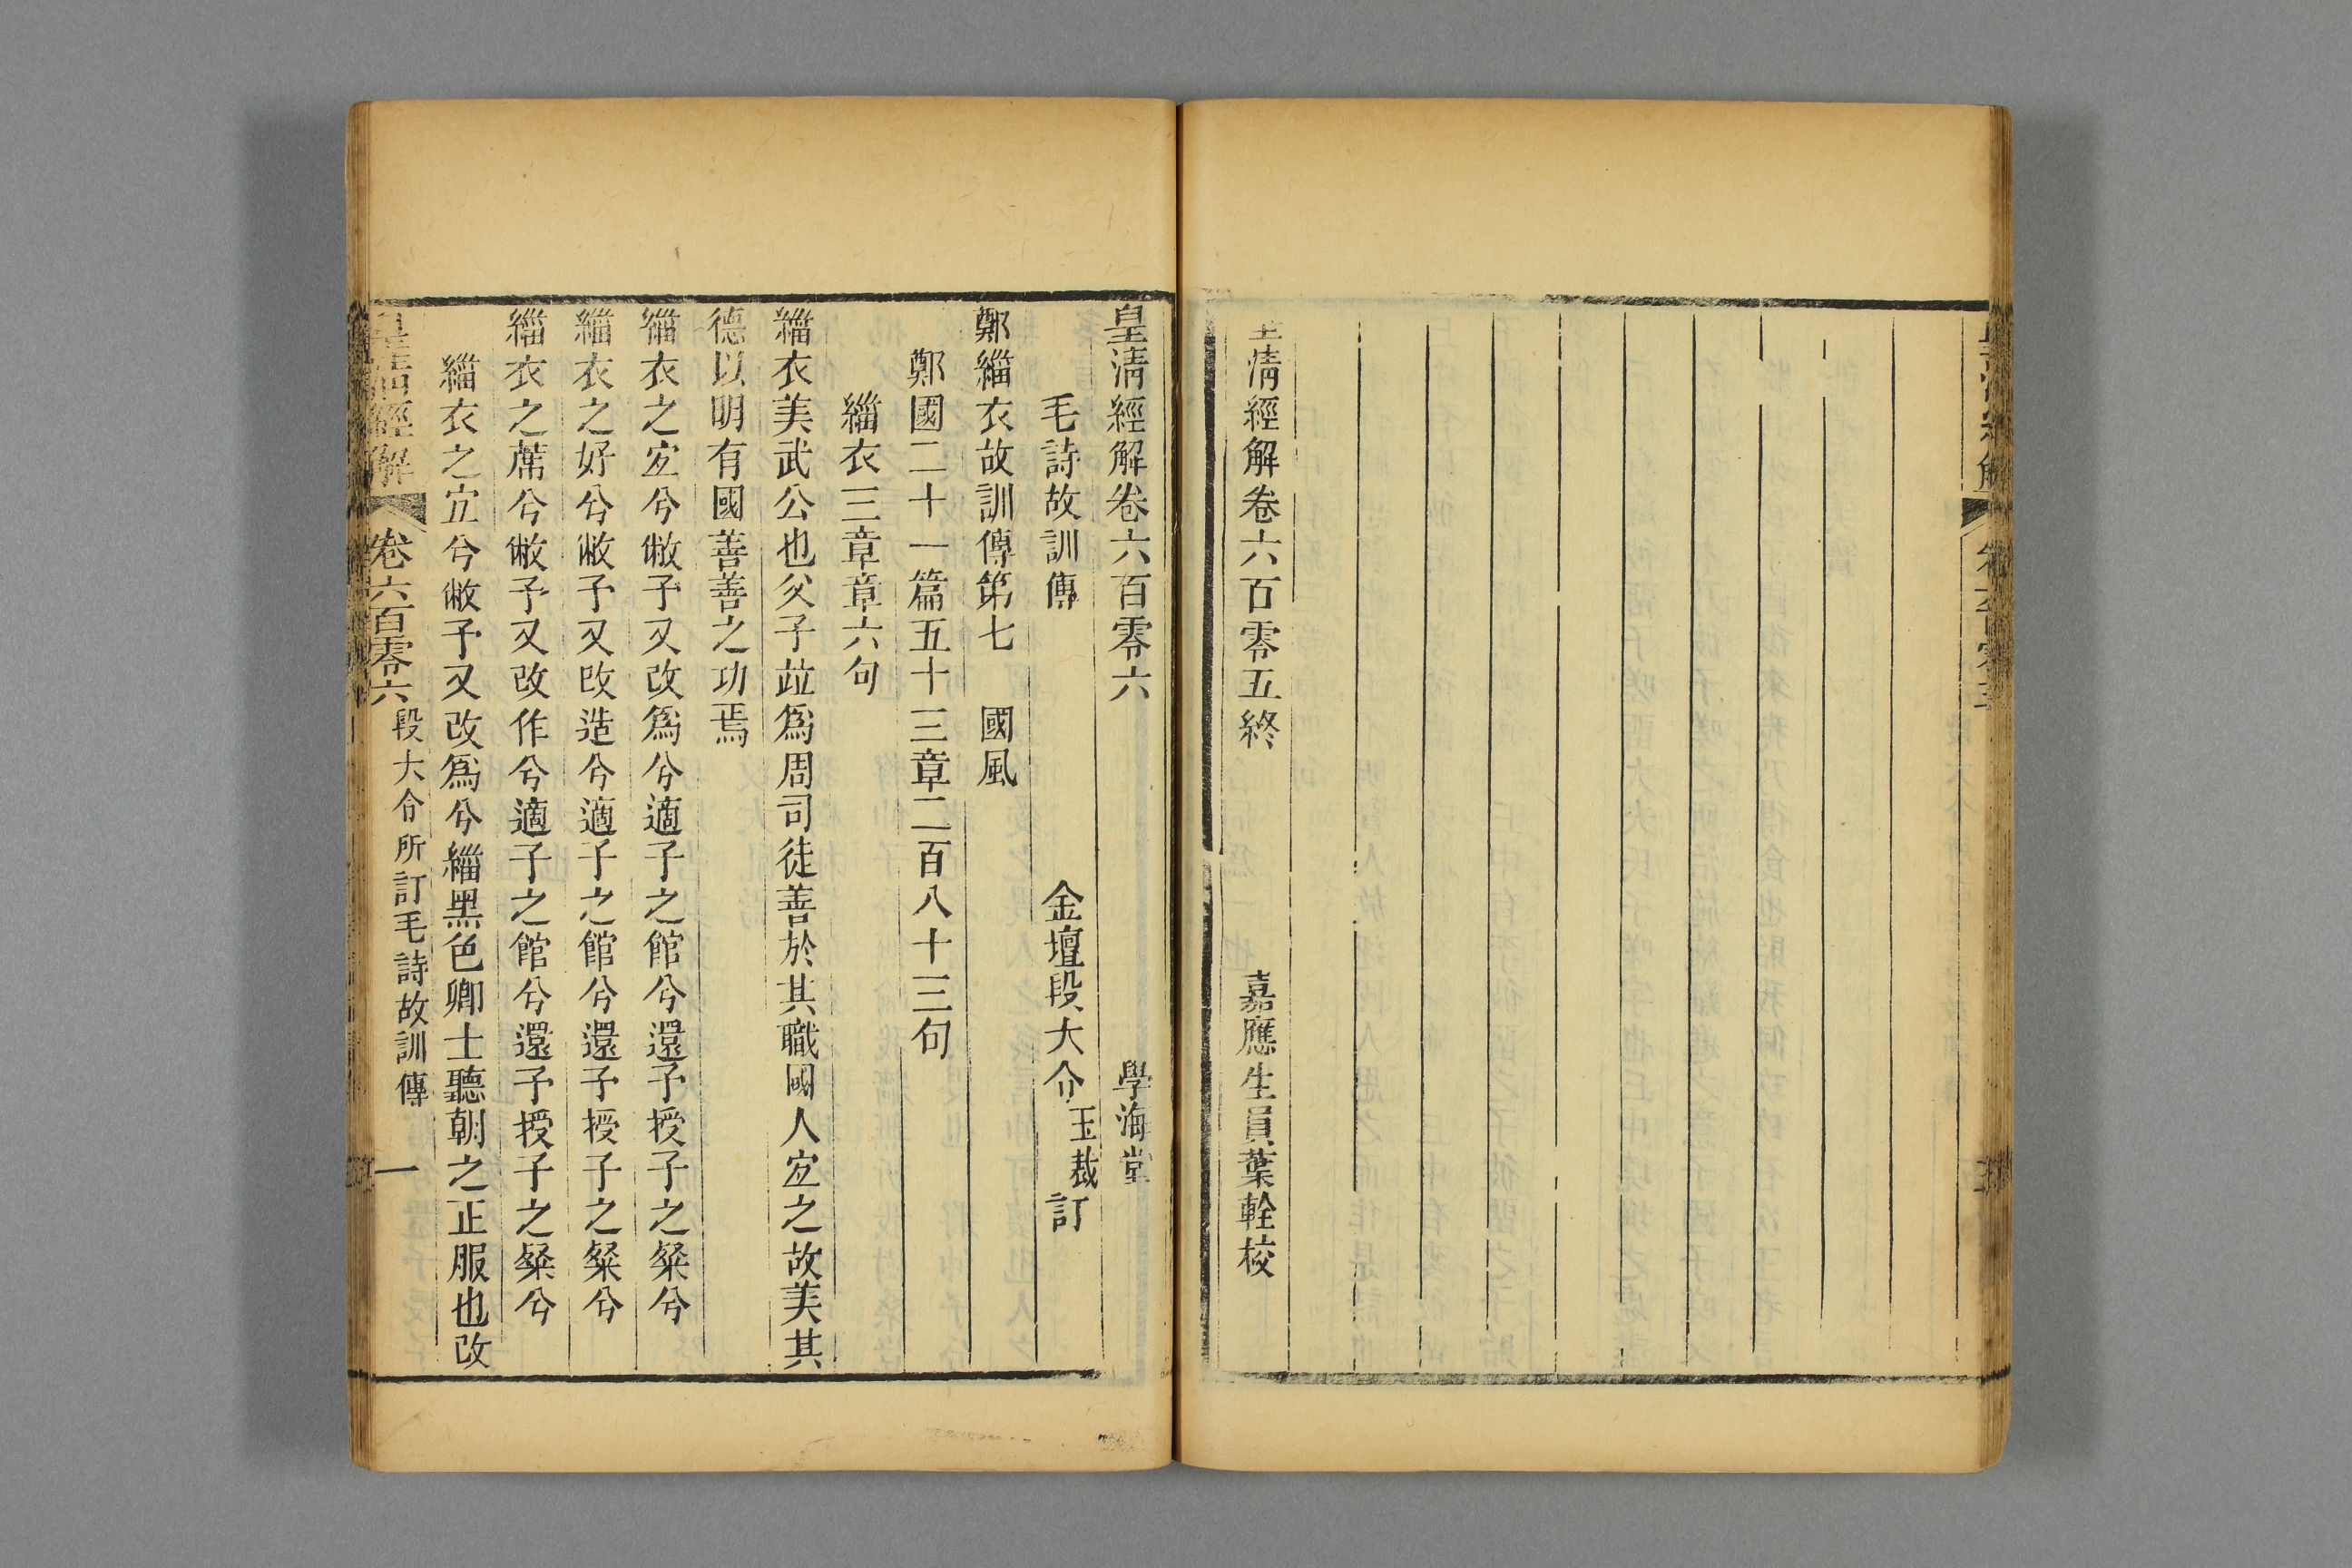 皇清經解卷六百零五終
嘉應生員葉軨校
皇清經解卷六百零六
學海堂
毛詩故訓傳
金壇段大令玉裁訂
鄭緇衣故訓傳第七　國風
鄭國二十一篇五十三章二百八十三句
緇衣三章章六句
緇衣美武公也父子並爲周司徒善於其職國人宐之故美其
德以明有國善善之功焉
緇衣之宐兮敝予又改爲兮適子之館兮還予授子之粲兮
緇衣之好兮敝予又改造兮適子之館兮還予授子之粲兮
緇衣之蓆兮敝予又改作兮適子之館兮還予授子之粲兮
緇衣之宐兮敝予又改爲兮緇黑色卿士聽朝之正服也改
皇清經解
卷六百零六
段大令所訂毛詩故訓傳
一